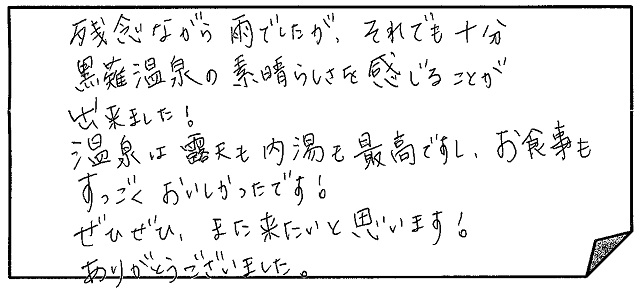 残念ながら雨でしたが、それでも十分
黒薙温泉の素晴らしさを感じることが
出来ました！
温泉は露天も内湯も最高ですし、お食事も
すっごくおいしかったです！
ぜひぜひ、また来たいと思います！
ありがとうございました。